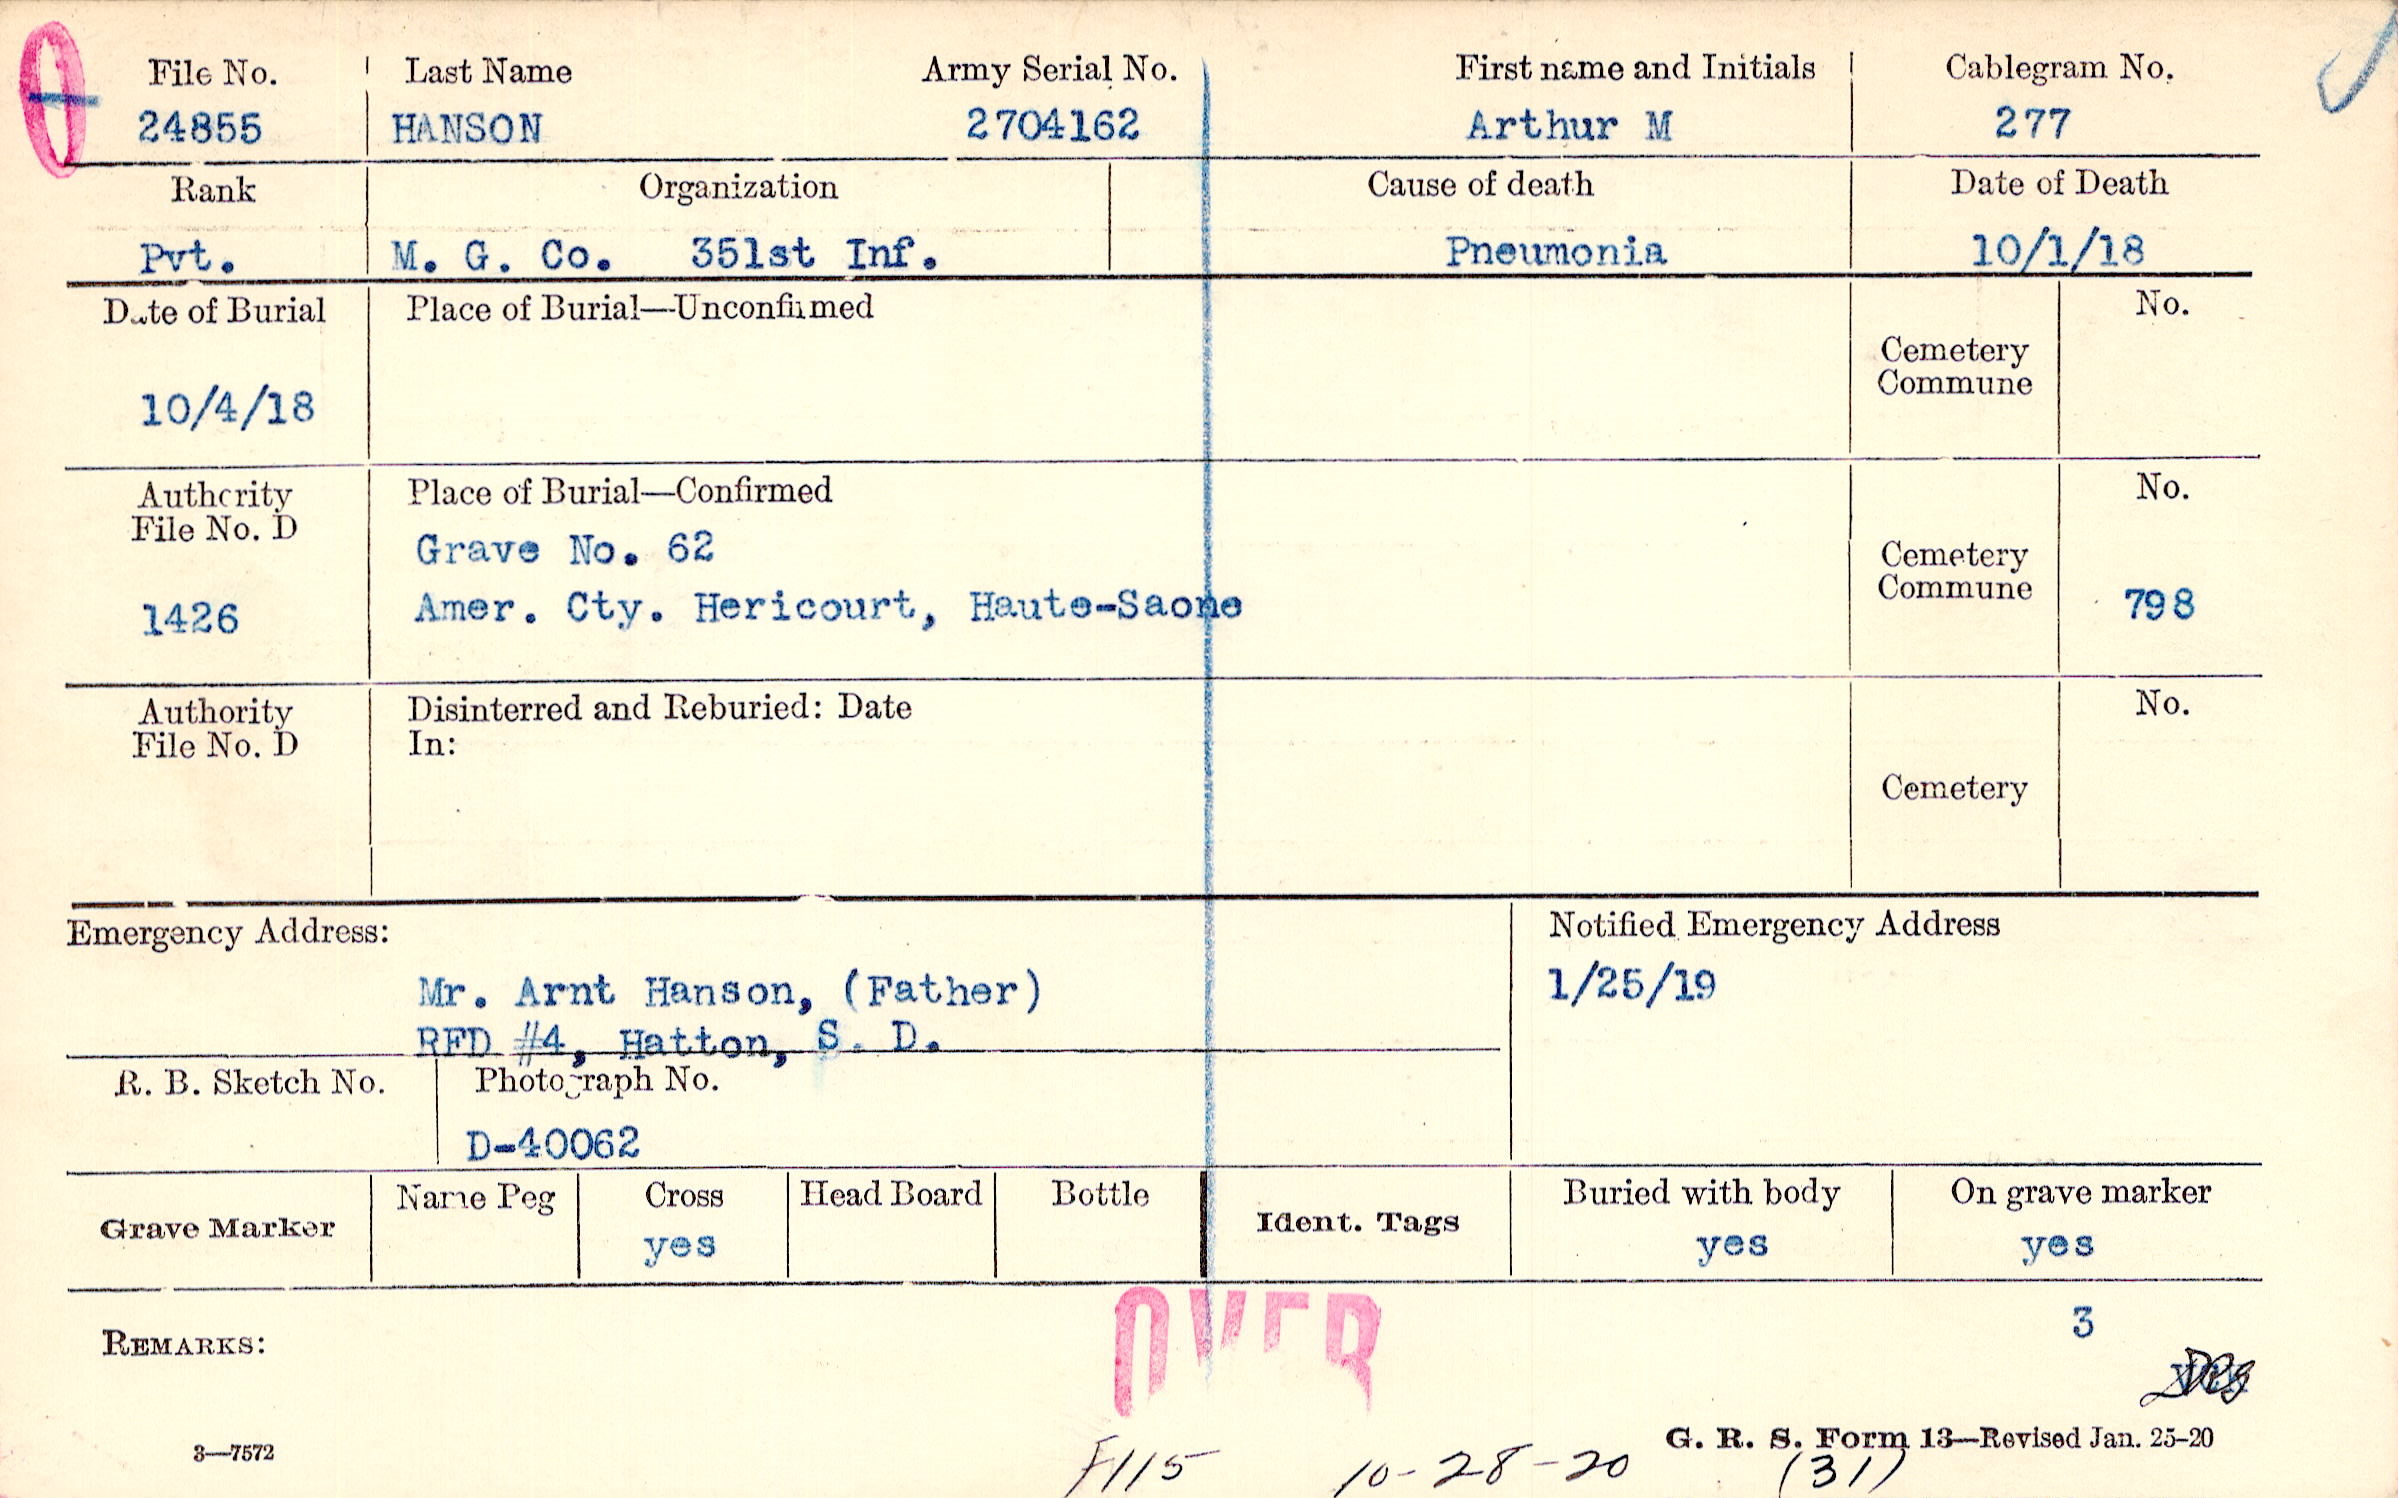 File No. Last Name Army Serial No. First name and Initials Cablegram No.
24855 HANSON 2704162 Arthur M 277
Rank Organization Cause of death Date of Death
Pvt. M. G. Co. 351st Inf. Pneumonia 10/1/18
Date of Burial Place of Burial—Unconfirmed No.
Cemetery
Commune
10/4/18
Authority Place of Burial—Confirmed No.
File No. D
Grave No. 62
Cemetery
Commune
1426 Amer. Cty. Hericourt, Haute-Saone 798
Authority Disinterred and Reburied: Date No.
File No. D In:
Cemetery
Emergency Address: Notified Emergency Address
Mr. Arnt Hanson, (Father) 1/25/19
RFD #4, Hatton, S. D.
R. B. Sketch No. Photograph No.
D-40062
Grave Marker Name Peg Cross Head Board Bottle Ident. Tags Buried with body On grave marker
yes yes yes
OVER
3
REMARKS:
3—7572 G. R. S. Form 13—Revised Jan. 25-20
F115 10-28-20 (31)